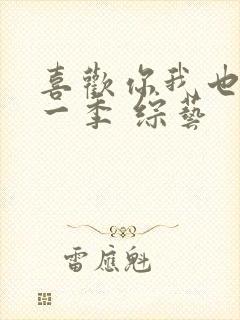 喜歡你我也
一季 綜藝
雷應魁